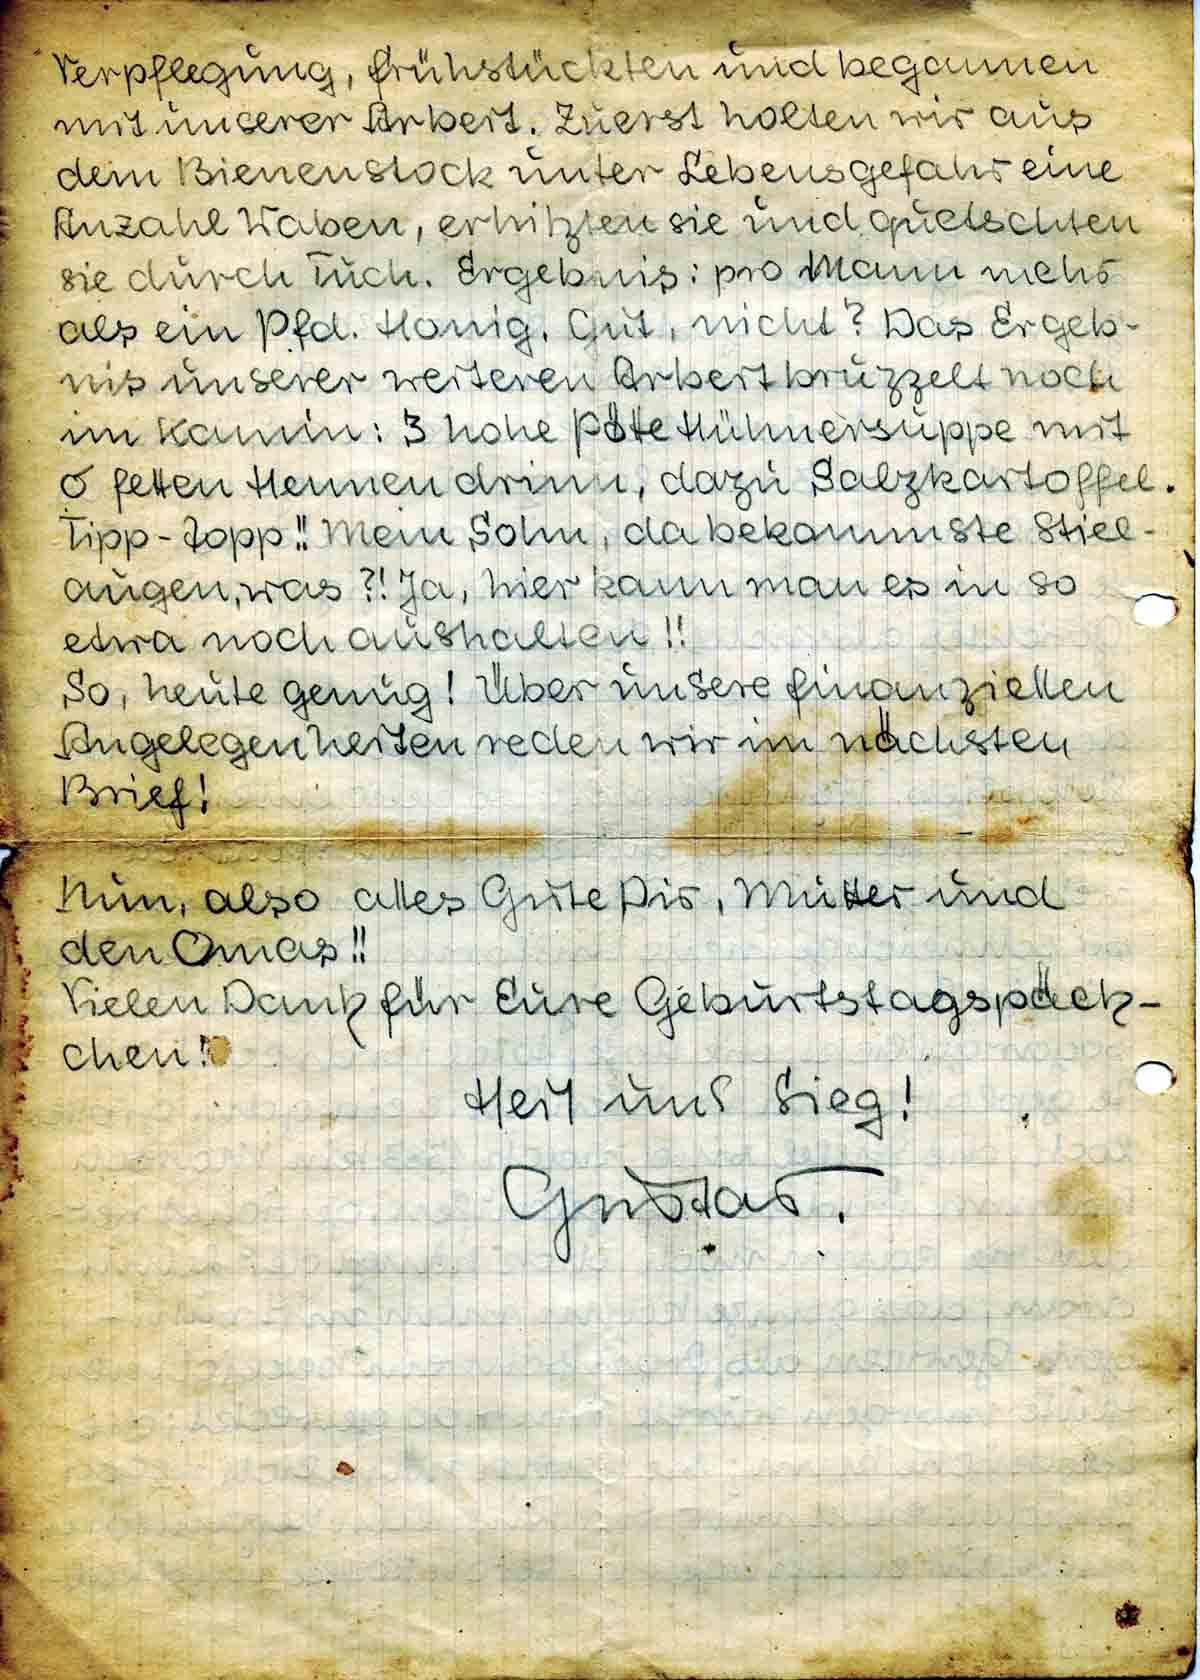 Verpflegung, frühstückten und begannen
mit unserer Arbeit. Zuerst holten wir aus
dem Bienenstock unter Lebensgefahr eine
Anzahl Waben, erhitzten sie und quetschten
sie durch Tuch. Ergebnis: pro Mann mehr
als ein Pfd. Honig. Gut, nicht? Das Ergeb-
nis unserer weiteren Arbeit bruzzelt noch
im Kamin: 3 hohe Pötte Hühnersuppe mit
6 fetten Hennen drinn, dazu Salzkartoffel.
Tipp-Topp!! Mein Sohn, da bekommste Stiel-
augen, was?! Ja, hier kann man es in so
etwa noch aushalten!!
So, heute genug! Über unsere finanziellen
Angelegenheiten reden wir im nächsten
Brief!
Nun, also alles Gute Dir, Mutter und
den Omas!!
Vielen Dank für Eure Geburtstagspäck-
chen!
Heil und Sieg!
Gustav.